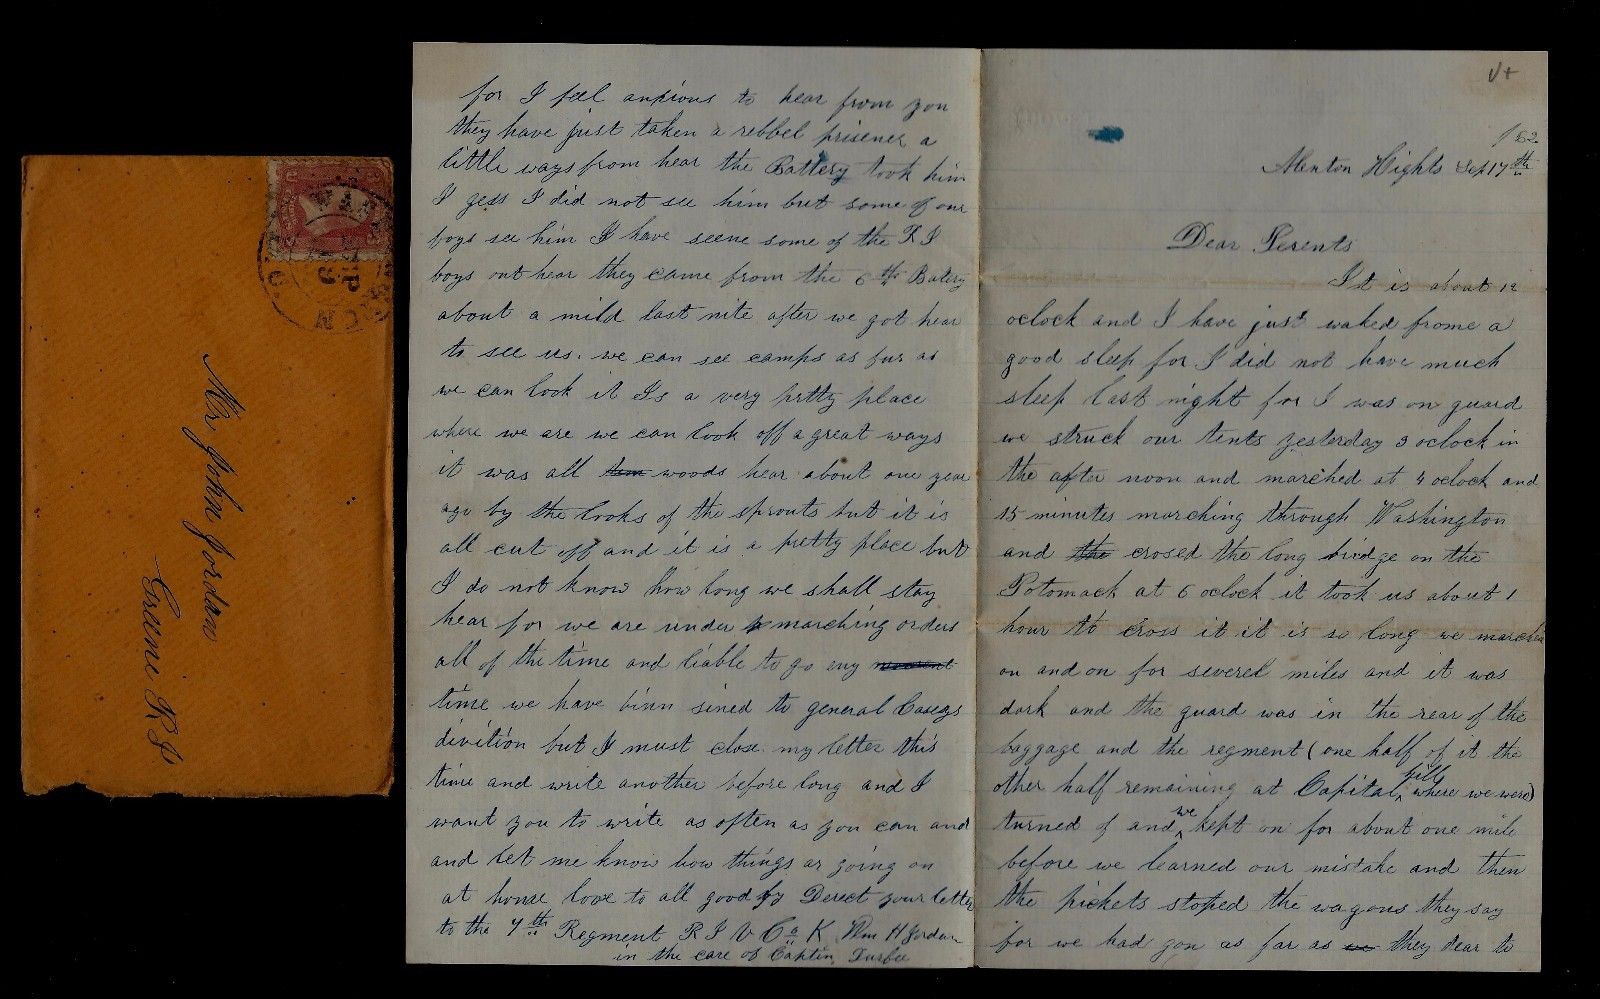 Mr John Jordan
Greene R I
V+
/62
Menton Hights Sep 17th
Dear Perents
It is about 12
oclock and I have just waked frome a
good sleep for I did not have much
sleep last night for I was on guard
we struck our tents yesterday 3 oclock in
the after noon and marched at 4 oclock and
15 minutes marching through Washington
and the crosed the long bridge on the
Potomack at 6 oclock it took us about 1
hour to cross it it is so long we marched
on and on for severel miles and it was
dark and the guard was in the rear of the
baggage and the regment (one half of it the
other half remaining at Capital hill where we were)
turned of and we kept on for about one mile
before we learned our mistake and then
the pickets stoped the wagons they say
for we had gon as far as we they dear to
for I feel anxious to hear from you
they have just taken a rebbel prisener a
little ways from hear the Battery took him
I gess I did not see him but some of our
boys see him I have seene some of the R I
boys out hear they came from the 6th Batery
about a mild last nite after we got hear
to see us. we can see camps as fur as
we can look it Is a very pretty place
where we are we can look off a great ways
it was all woods hear about one year
ago by the looks of the sprouts but it is
all cut off and it is a pretty place but
I do not know how long we shall stay
hear for we are under marching orders
all of the time and liable to go eny moment
time we have binn sined to general Caseys
divition but I must close my letter this
time and write another before long and I
want you to write as often as you can and
and let me know how things ar going on
at house love to all good by Derect your letter
to the 7th Regment R I V Co K Wm H Jordan
in the care of Captin